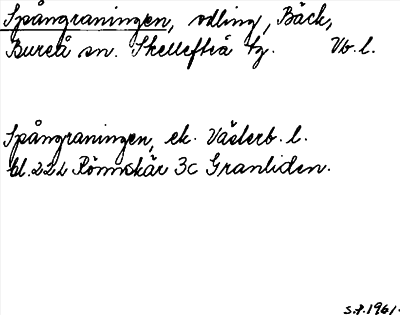 Spångraningen, odling, Bäck,
Bureå sn. Skellefteå tg. Vb. l.
Spångraningen, ek. Västerb. l.
bl. 22 L Rönnskär 3c Granliden.
S.P. 1961.